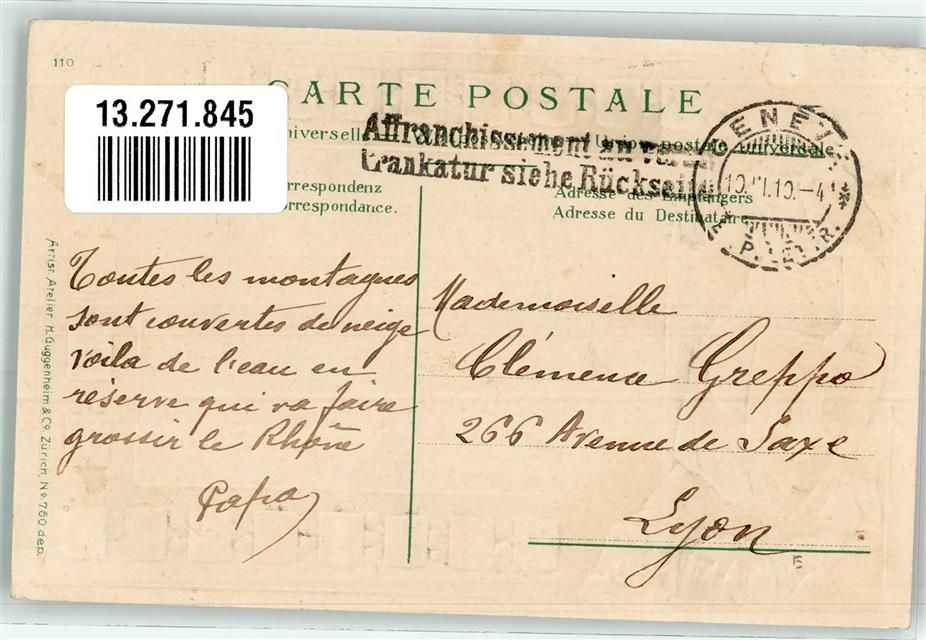 110
13.271.845
CARTE POSTALE
niverselle
Union postale universelle
Affranchissement au
Frankatur siehe Rückseite
rrespondenz
orrespondance.
Adresse des Empfängers
Adresse du Destinataire
Toutes les montagnes
sont couvertes de neige
Voila de l'eau en
réserve qui va faire
grossir le Rhône
Papa
Mademoiselle
Clémence Greppo
266 Avenue de Saxe
Lyon
E
Artist. Atelier H. Guggenheim & Co., Zürich, No. 760 dep.